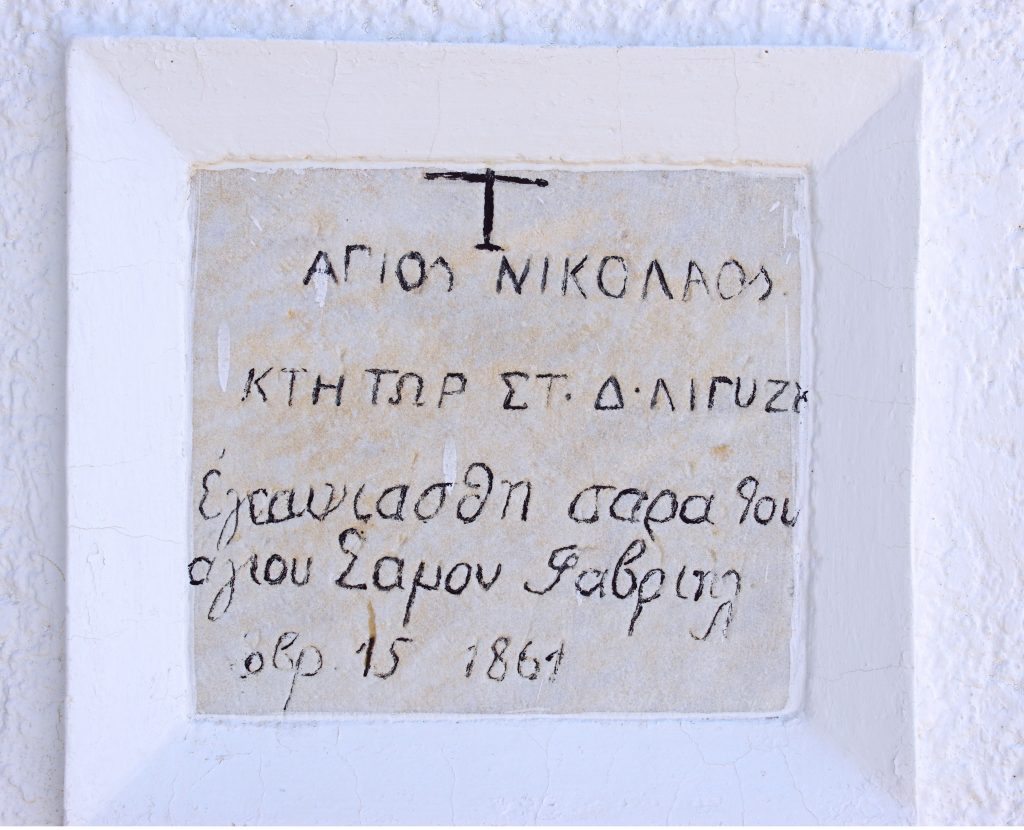 ΑΓΙΟς ΝΙΚΟΛΑΟς
ΚΤΗΤΩΡ ΣΤ. Δ. ΛΙΓΥΖ
ἐγκαινιάσθη παρα του
ἁγίου Σαμου Γαβριηλ
ὀβρ. 15 1861